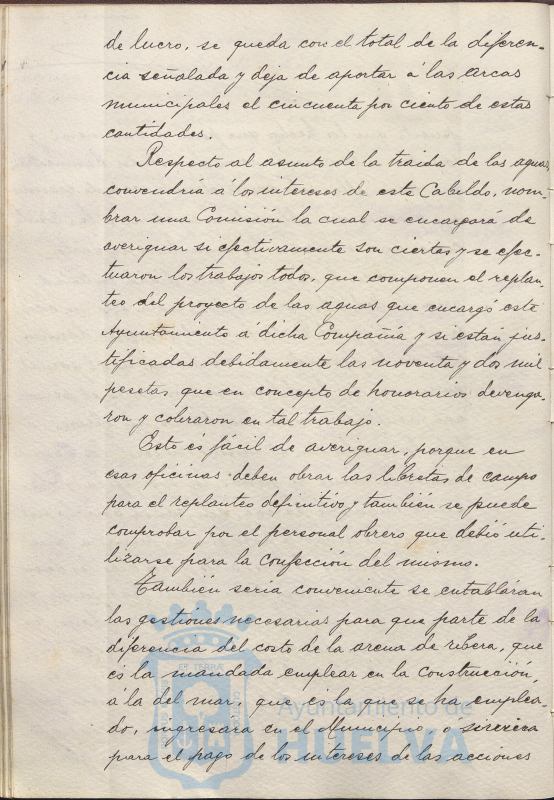 de lucro, se queda con el total de la diferen-
cia señalada y deja de aportar á las arcas
municipales el cincuenta por ciento de estas
cantidades.
Respecto al asunto de la traida de las aguas
convendría á los intereses de este Cabildo, nom-
brar una Comisión la cual se encargará de
averiguar si efectivamente son ciertas y se efec-
tuaron los trabajos todos, que componen el replan-
teo del proyecto de las aguas que encargó este
Ayuntamiento á dicha Compañía y si están jus-
tificadas debidamente las noventa y dos mil
pesetas que en concepto de honorarios devenga-
ron y cobraron en tal trabajo.
Esto és fácil de averiguar, porque en
esas oficinas deben obrar las libretas de campo
para el replanteo definitivo y también se puede
comprobar por el personal obrero que debió uti-
lizarse para la confección del mismo.
También seria conveniente se entablaran
las gestiones necesarias para que parte de la
diferencia del costo de la arena de ribera, que
és la mandada emplear en la construcción,
á la del mar, que és la que se ha emplea-
do, ingresara en el Municipio, ó sirviera
para el pago de los intereses de las acciones
Ayuntamiento de
HUELVA